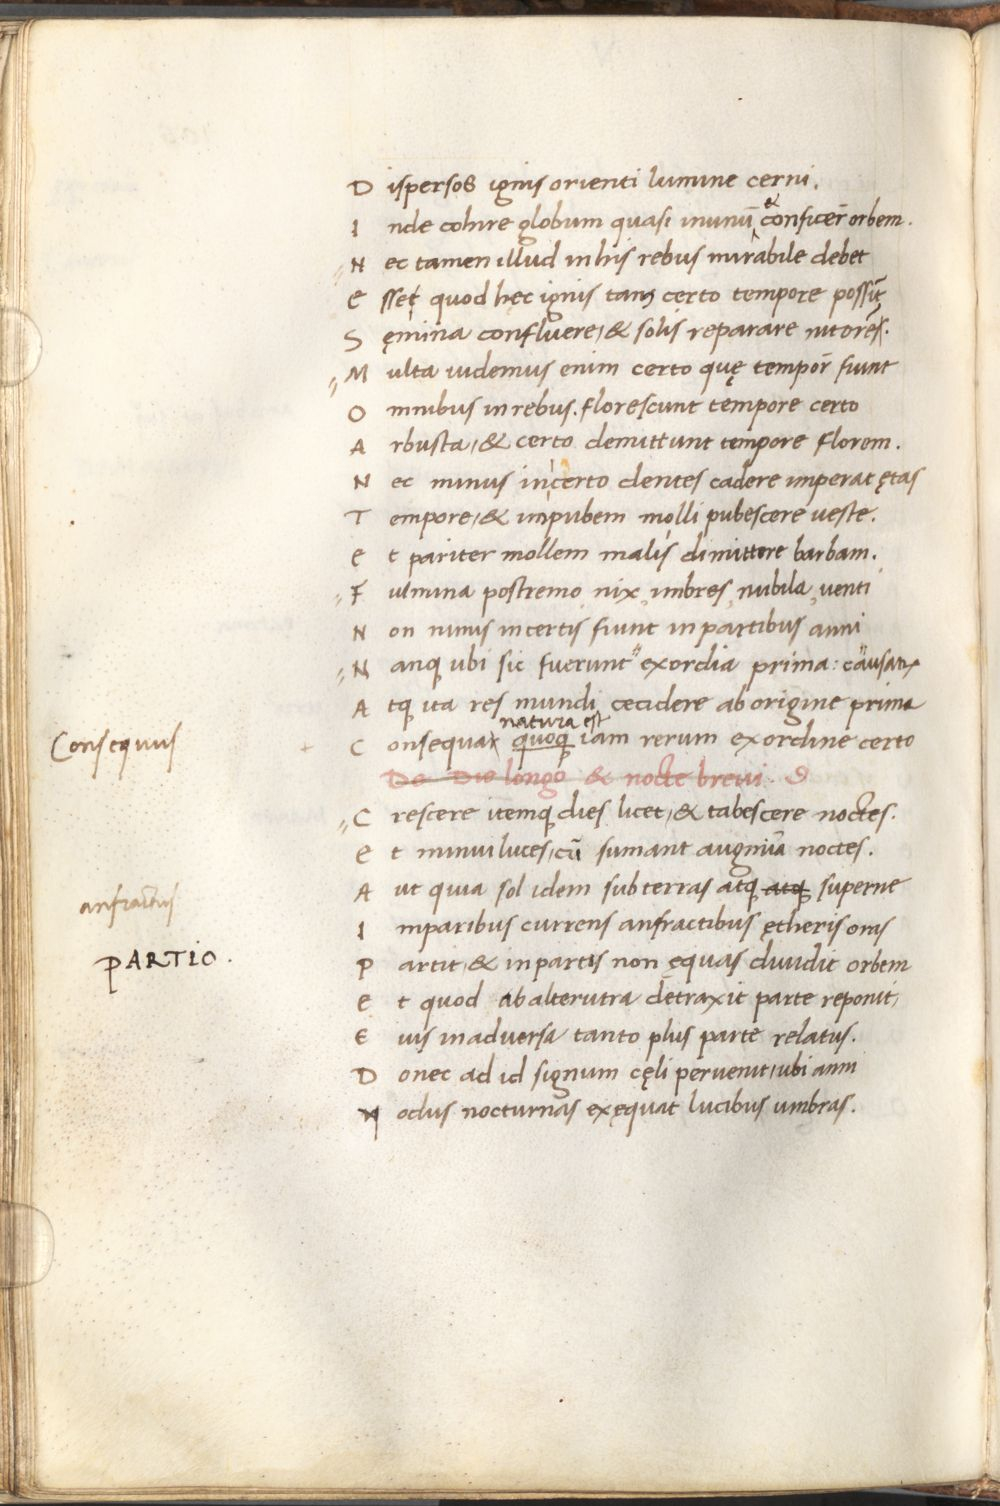 D ispersos ignis orienti lumine cerni.
I nde cohire globum quasi inunū & conficer̄ orbem.
N ec tamen illud in his rebus mirabile debet
E sset quod hęc ignis tam certo tempore possīt
S ęmina confluere, & solis reparare nitorē.
M ulta uidemus enim certo quę tempor̄ fiunt
O mnibus in rebus. florescunt tempore certo
A rbusta, & certo demittunt tempore florem.
N ec minus incerto dentes cadere imperat ętas
T empore, & impubem molli pubescere ueste.
E t pariter mollem malis dimittere barbam.
F ulmina postremo nix, imbres, nubila, uenti
N on nimis incertis fiunt in partibus anni
N anq ubi sic fuerunt exordia prima: causarꝝ
A tq ita res mundi cecidere ab origine prima
natura est
Conseqnus
C onsequa quoq iam rerum exordine certo
De Die longo & nocte breui.
C rescere itemq dies licet, & tabescere noctes.
E t minui luces, cū sumant augmīa noctes.
A ut quia sol idem sub terras atq atq superne
anfractus
I mparibus currens anfractibus ętheris oras
PARTIO.
P artit, & in partis non ęquas diuidit orbem
E t quod ab alterutra detraxit parte reponit,
E ius in aduersa tanto plus parte relatus.
D onec ad id signum cęli peruenit, ubi anni
N odus nocturnas exęquat lucibus umbras.